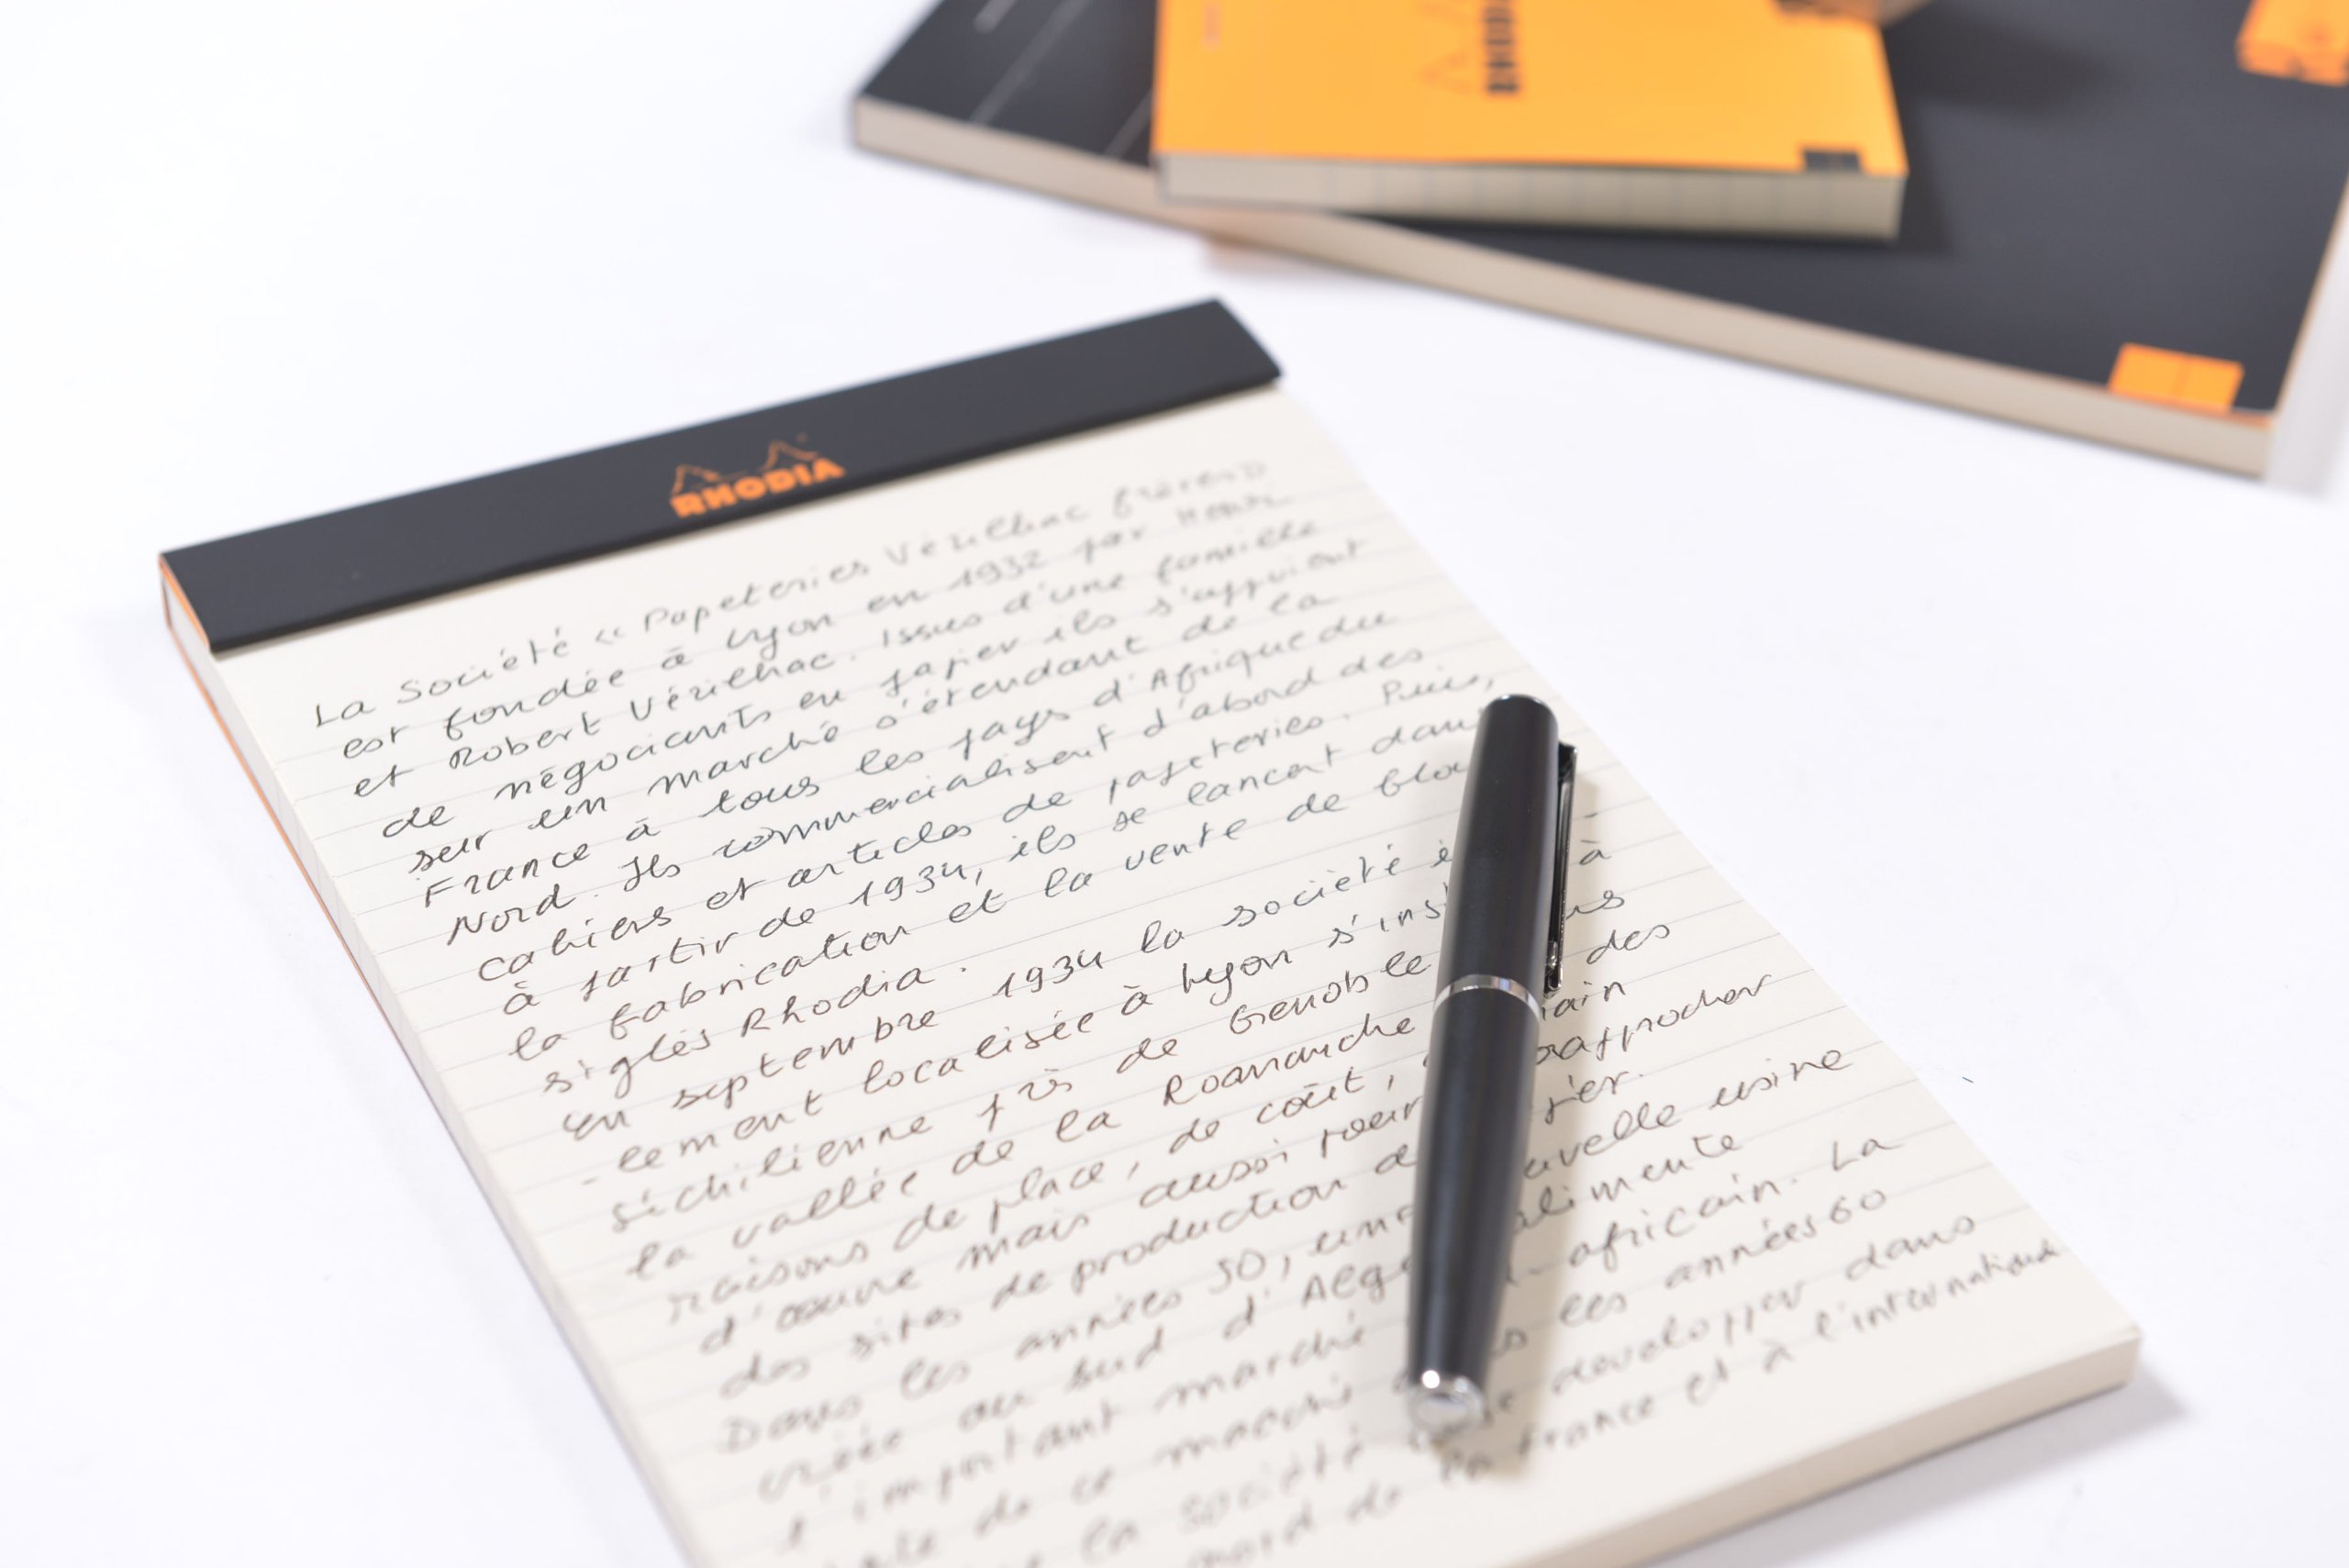 RHODIA
RHODIA
La Société « Papeteries Vérilhac frères »
est fondée à Lyon en 1932 par Henri
et Robert Vérilhac. Issus d'une famille
de négociants en papier ils s'appuient
sur un marché s'étendant de la
France à tous les pays d'Afrique du
Nord. Ils commercialisent d'abord des
cahiers et articles de papeteries. Puis,
à partir de 1934, ils se lancent dans
la fabrication et la vente de
siglés Rhodia.
En septembre 1934 la société
-lement localisée à Lyon s'inst à
Séchilienne près de Grenoble
la vallée de la Romanche des
raisons de place, de coût,
d'œuvre mais aussi pour rapprocher
des sites de production
Dans les années 50, une nouvelle usine
créée au sud d' alimente
l'important marché africain. La
de ce marché les années 60
la société se développer dans
nord de la France et à l'international